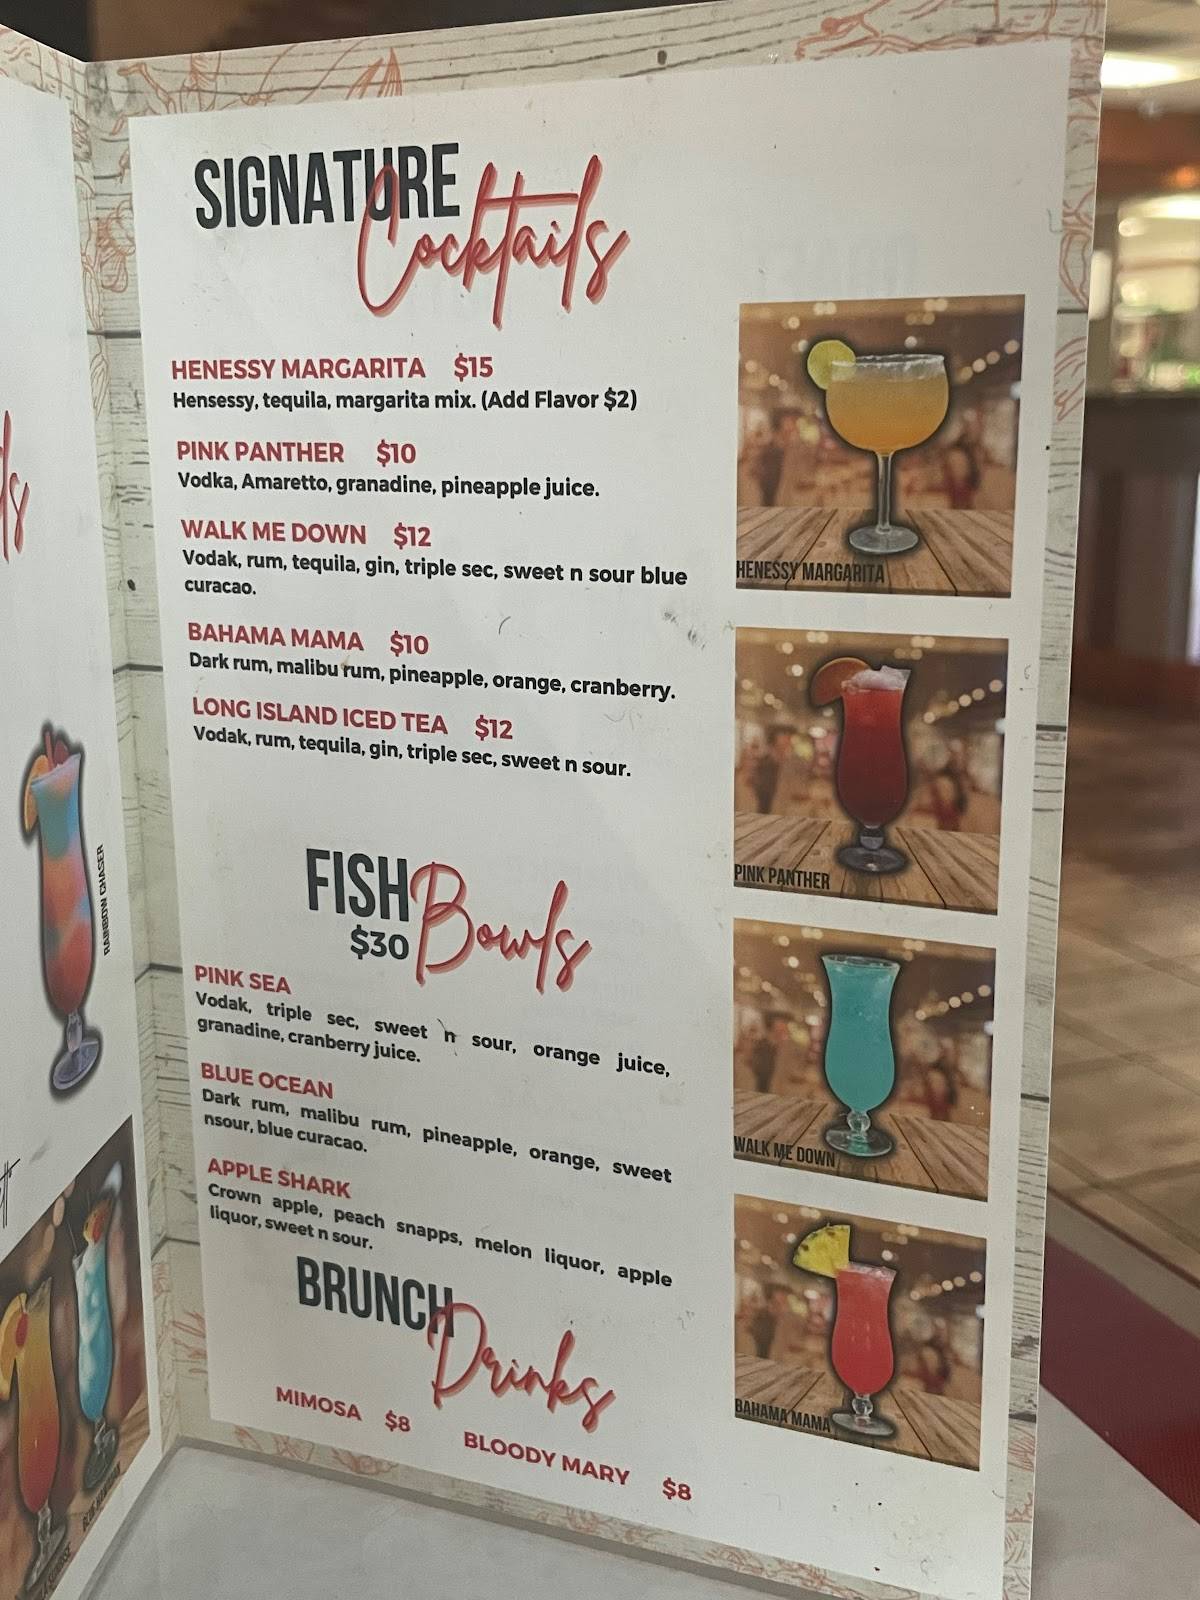 SIGNATURE
Cocktails
HENESSY MARGARITA $15
Hensessy, tequila, margarita mix. (Add Flavor $2)
PINK PANTHER $10
Vodka, Amaretto, granadine, pineapple juice.
WALK ME DOWN $12
Vodak, rum, tequila, gin, triple sec, sweet n sour blue
curacao.
BAHAMA MAMA $10
Dark rum, malibu rum, pineapple, orange, cranberry.
LONG ISLAND ICED TEA $12
Vodak, rum, tequila, gin, triple sec, sweet n sour.
FISH
Bowls
$30
PINK SEA
Vodak, triple sec, sweet n sour, orange juice,
granadine, cranberry juice.
BLUE OCEAN
Dark rum, malibu rum, pineapple, orange, sweet
nsour, blue curacao.
APPLE SHARK
Crown apple, peach snapps, melon liquor, apple
liquor, sweet n sour.
BRUNCH
Drinks
MIMOSA $8
BLOODY MARY $8
HENESSY MARGARITA
PINK PANTHER
WALK ME DOWN
BAHAMA MAMA
RAINBOW CHASER